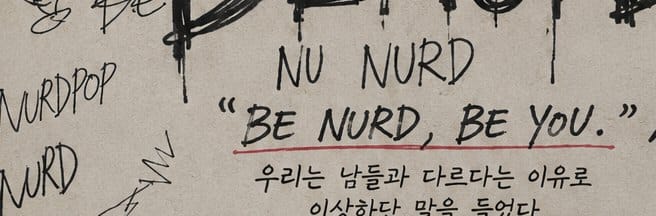 BE
NU NURD
NURDPOP
“BE NURD, BE YOU.”
NURD
우리는 남들과 다르다는 이유로
이상하단 말을 들었다